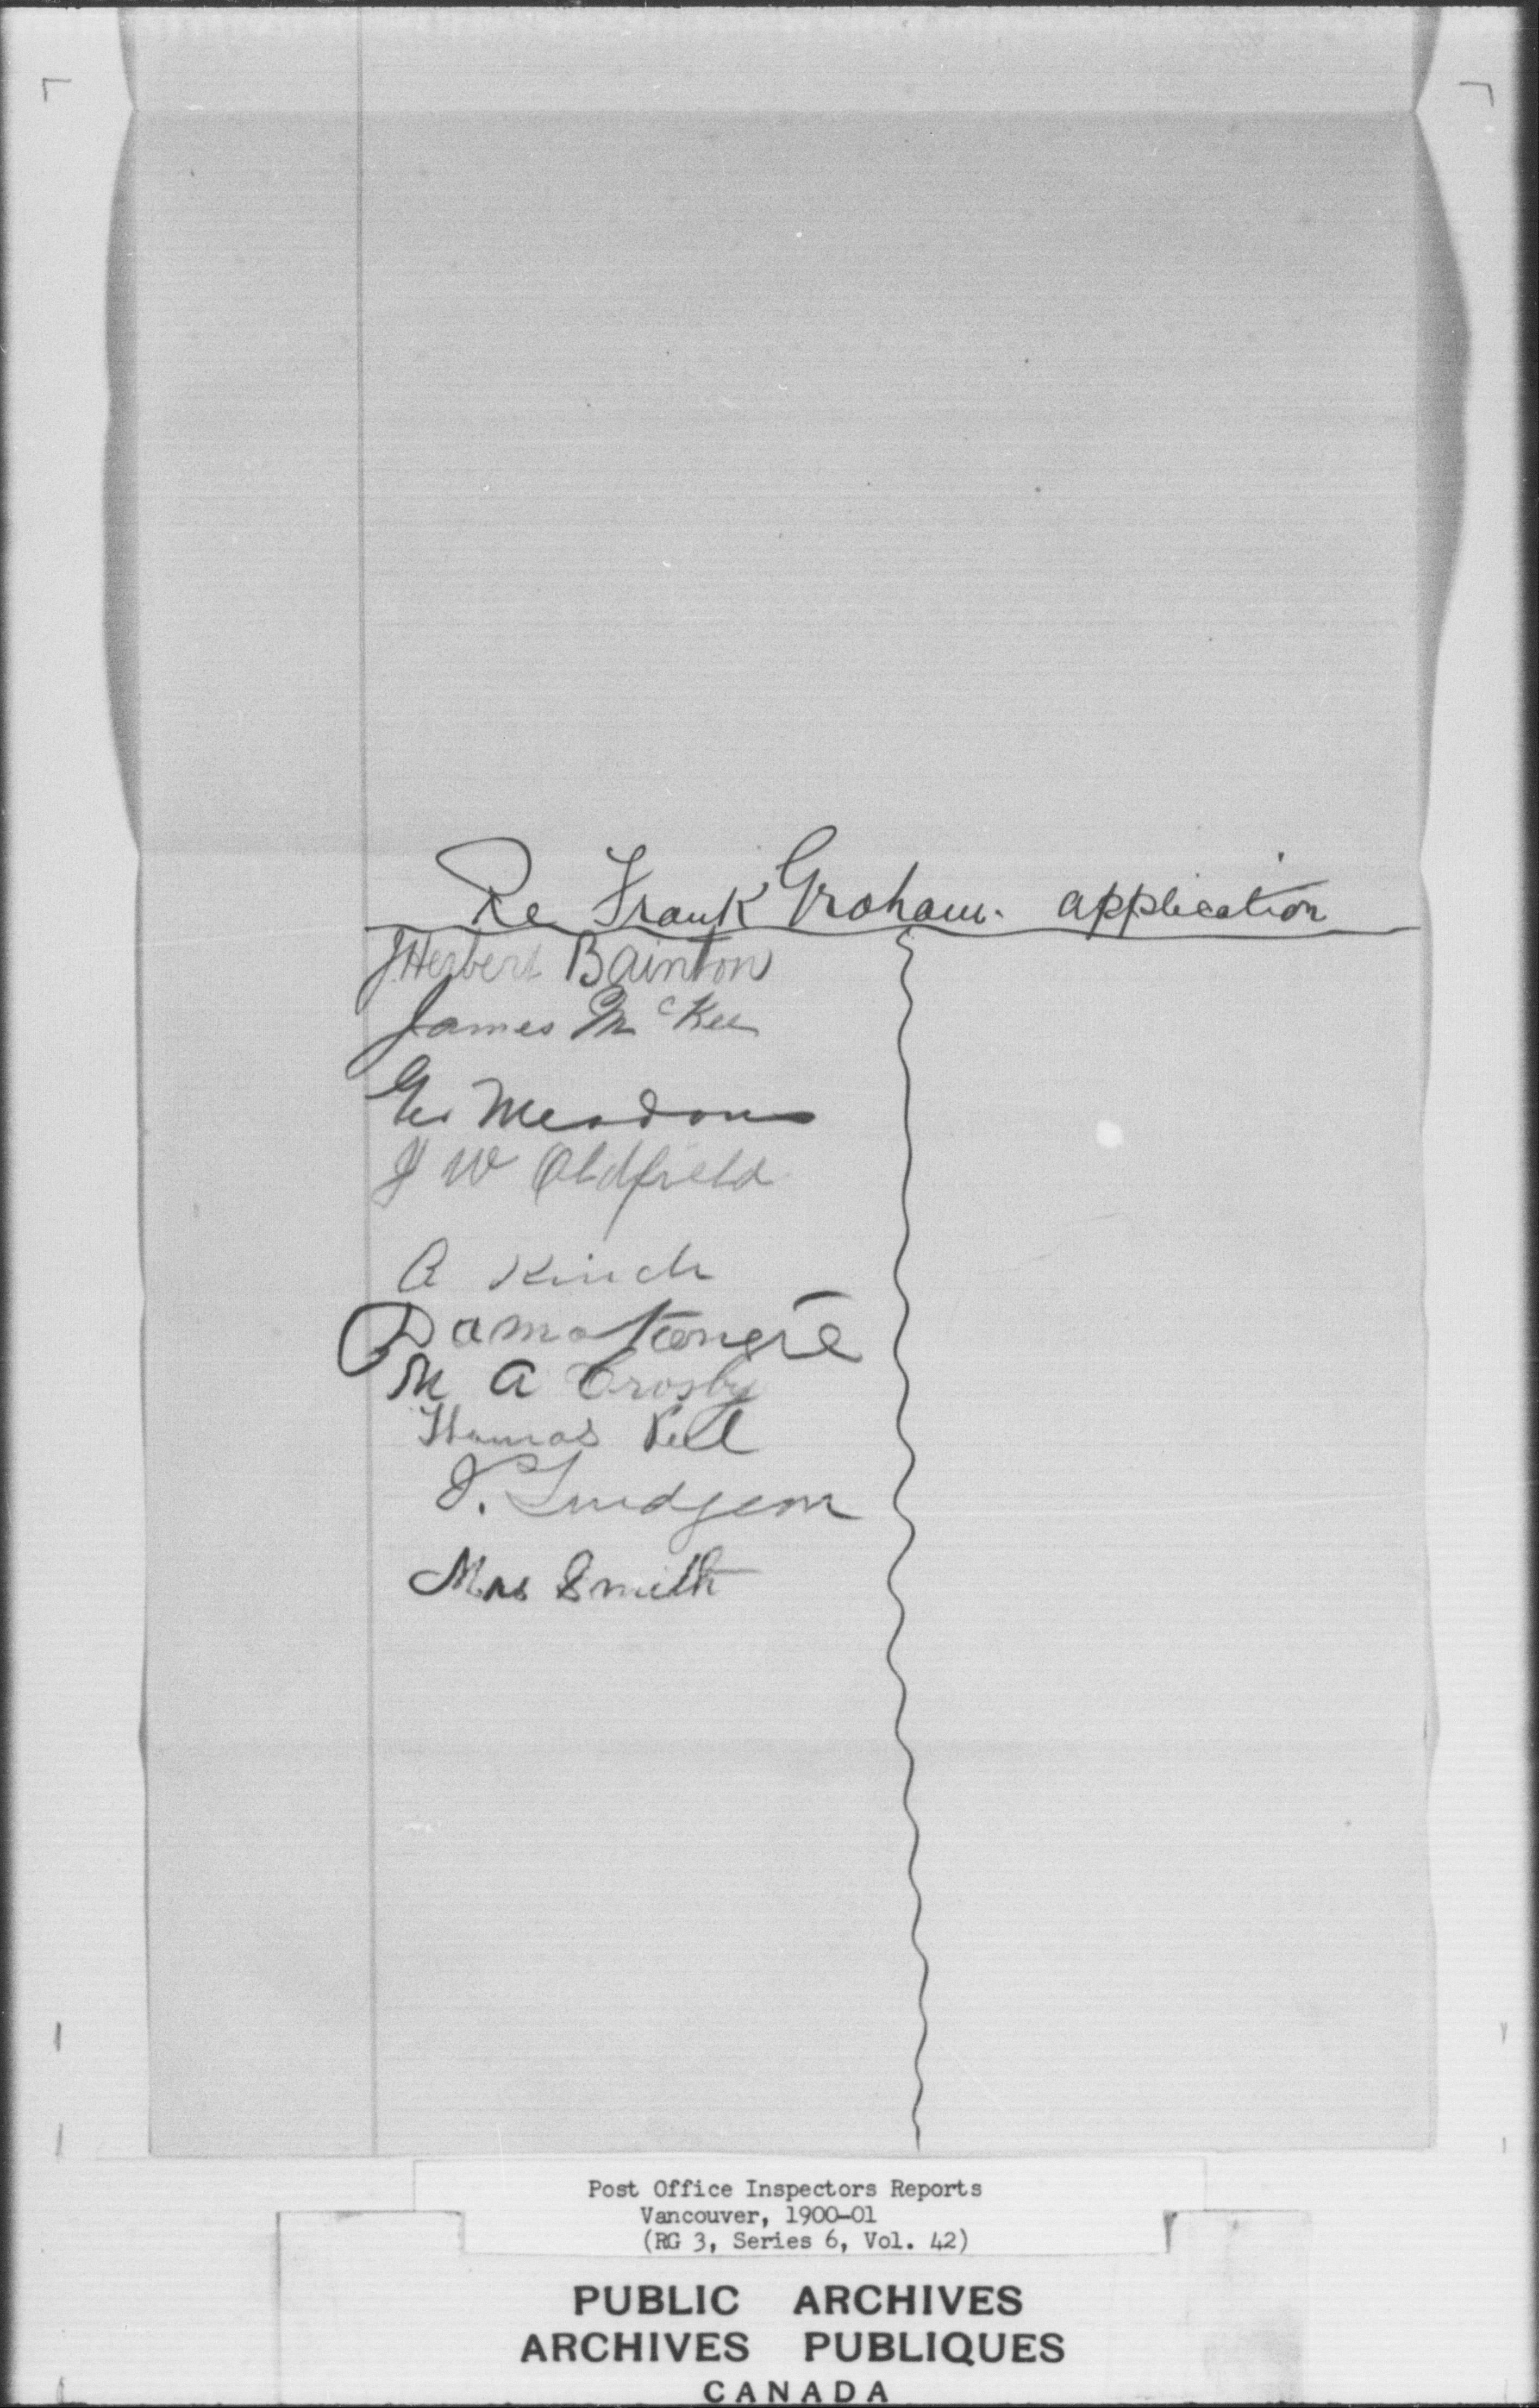 Re Frank Graham. application
J. Herbert Bainton
James McKee
Geo Meadows
J W Oldfield
A Kinch
M A Crosby
Thomas
J.
Mrs Smith
Post Office Inspectors Reports
Vancouver, 1900-01
(RG 3, Series 6, Vol. 42)
PUBLIC ARCHIVES
ARCHIVES PUBLIQUES
CANADA